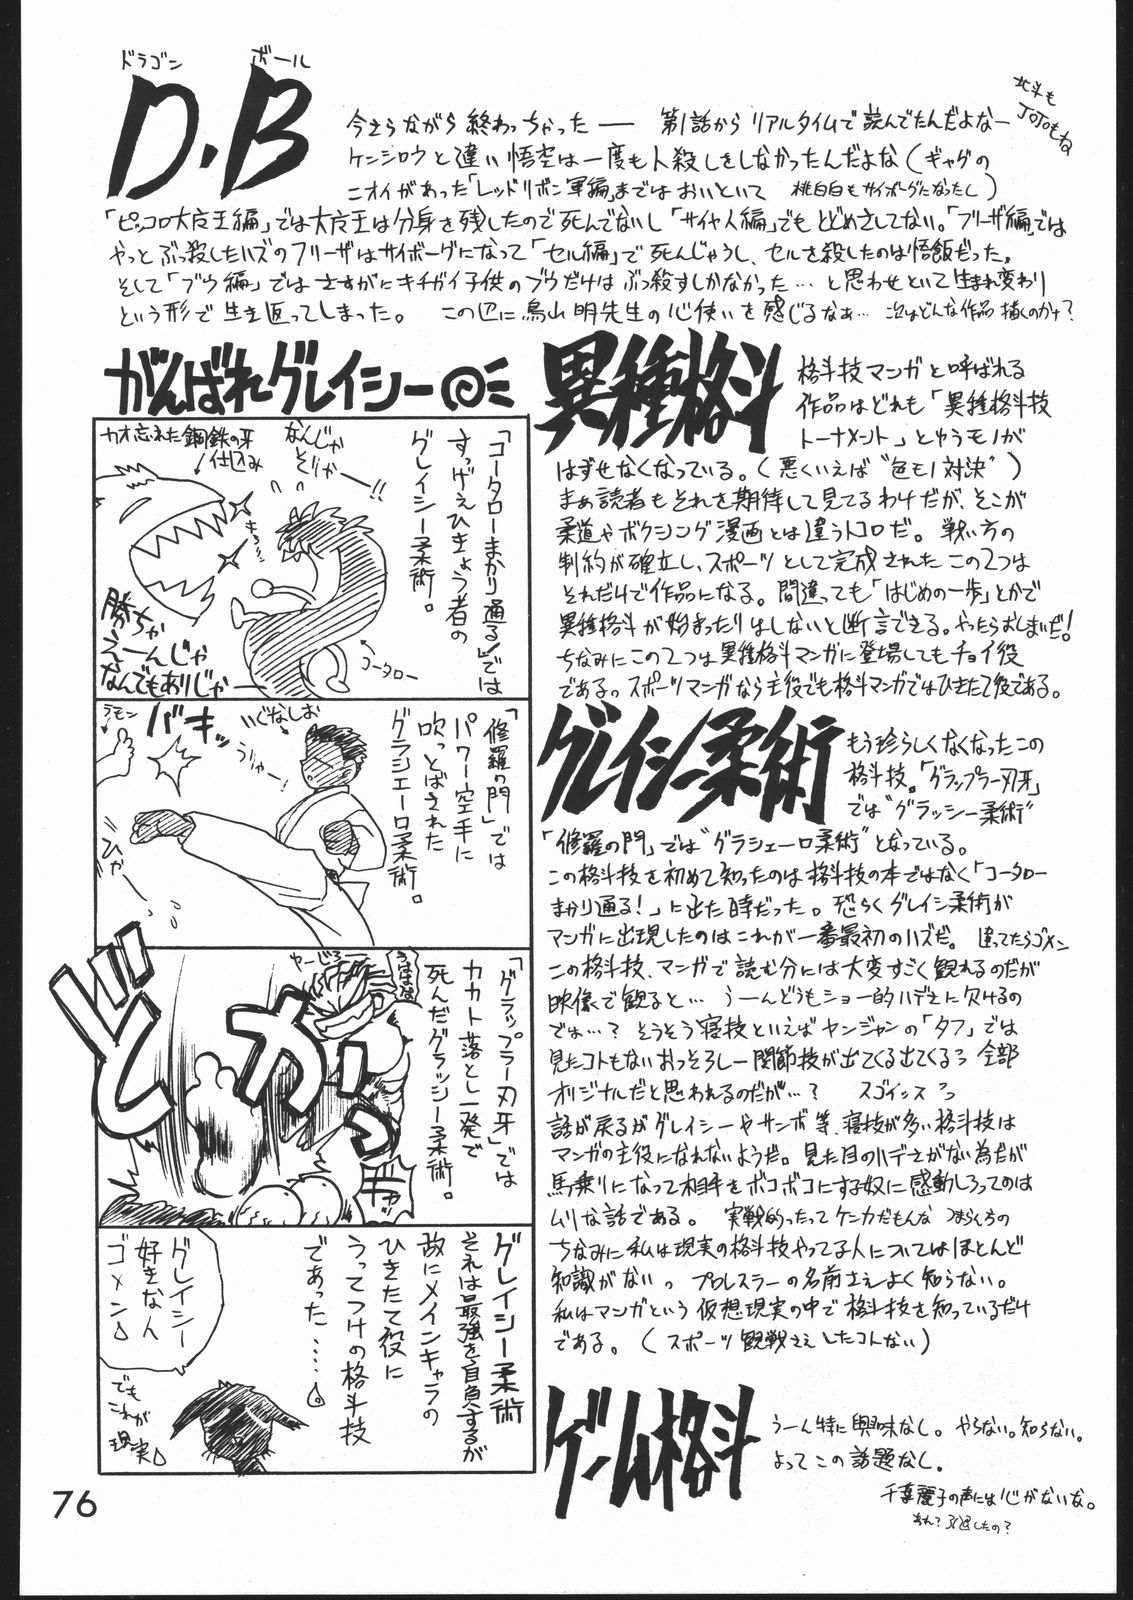 ドラゴン ボール
D.B
北斗も
JOJOもね
今さらながら終わっちゃった── 第1話からリアルタイムで読んでたんだよなー
ケンシロウと違い悟空は一度も人殺しをしなかったんだよな(ギャグの
ニオイがあった「レッドリボン軍編」まではおいといて 桃白白もサイボーグになったし)
「ピッコロ大魔王編」では大魔王は分身を残したので死んでないし「サイヤ人編」でもとどめさしてない。「フリーザ編」では
やっとぶっ殺したハズのフリーザはサイボーグになって「セル編」で死んじゃうし、セルを殺したのは悟飯だった。
そして「ブウ編」ではさすがにキチガイ子供のブウだけはぶっ殺すしかなかった…と思わせといて生まれ変わり
という形で生き返ってしまった。 この辺に鳥山明先生の心使いを感じるなぁ… 次はどんな作品描くのかナ?
がんばれグレイシー
「コータローまかり通る!」では
すっげえひきょう者の
グレイシー柔術。
なんじゃ
そりゃー!!
カオ忘れた鋼鉄の牙
仕込み
勝ちゃ
えーんじゃ
なんでもありじゃー
コータロー
「修羅の門」では
パワー空手に
吹っとばされた
グラシエーロ柔術。
いぐなしお
うりゃー!
バキッ
ラモン
ひゃー
「グラップラー刃牙」では
カカト落とし一発で
死んだグラッシー柔術。
やーじろー
うははは
どかっ
ギャッ
グレイシー柔術
それは最強を自負するが
故にメインキャラの
ひきたて役に
うってつけの格斗技
であった……
グレイシー
好きな人
ゴメン
でも
これが
現実
異種格斗
格斗技マンガと呼ばれる
作品はどれも「異種格斗技
トーナメント」とゆうモノが
はずせなくなっている。(悪くいえば“色モノ対決”)
まぁ読者もそれを期待して見てるわけだが、そこが
柔道やボクシング漫画とは違うトコロだ。戦い方の
制約が確立し、スポーツとして完成されたこの2つは
それだけで作品になる。間違っても「はじめの一歩」とかで
異種格斗が始まったりはしないと断言できる。やったらおしまいだ!
ちなみにこの2つは異種格斗マンガに登場してもチョイ役
である。スポーツマンガなら主役でも格斗マンガではひきたて役である。
グレイシー柔術
もう珍らしくなくなったこの
格斗技。「グラップラー刃牙」
では“グラッシー柔術”
「修羅の門」では“グラシエーロ柔術”となっている。
この格斗技を初めて知ったのは格斗技の本ではなく「コータロー
まかり通る!」に出た時だった。恐らくグレイシー柔術が
マンガに出現したのはこれが一番最初のハズだ。違ってたらゴメン
この格斗技、マンガで読む分には大変すごく観れるのだが
映像で観ると… うーんどうもショー的ハデさに欠けるの
では…? そうそう寝技といえばヤンジャンの「タフ」では
見たコトもないおっそろしー関節技が出てくる出てくるっ 全部
オリジナルだと思われるのだが…? スゴイッスっ
話が戻るがグレイシーやサンボ等、寝技が多い格斗技は
マンガの主役になれないようだ。見た目のハデさがない為だが
馬乗りになって相手をボコボコにする奴に感動しろってのは
ムリな話である。 実戦的ったってケンカだもんな つまらんの
ちなみに私は現実の格斗技やってる人についてはほとんど
知識がない。プロレスラーの名前さえよく知らない。
私はマンガという仮想現実の中で格斗技を知っているだけ
である。(スポーツ観戦さえしたコトない)
ゲーム格斗
うーん特に興味なし。やらない。知らない。
よってこの話題なし。
千葉麗子の声には心がないな。
あれ?引退したの?
76